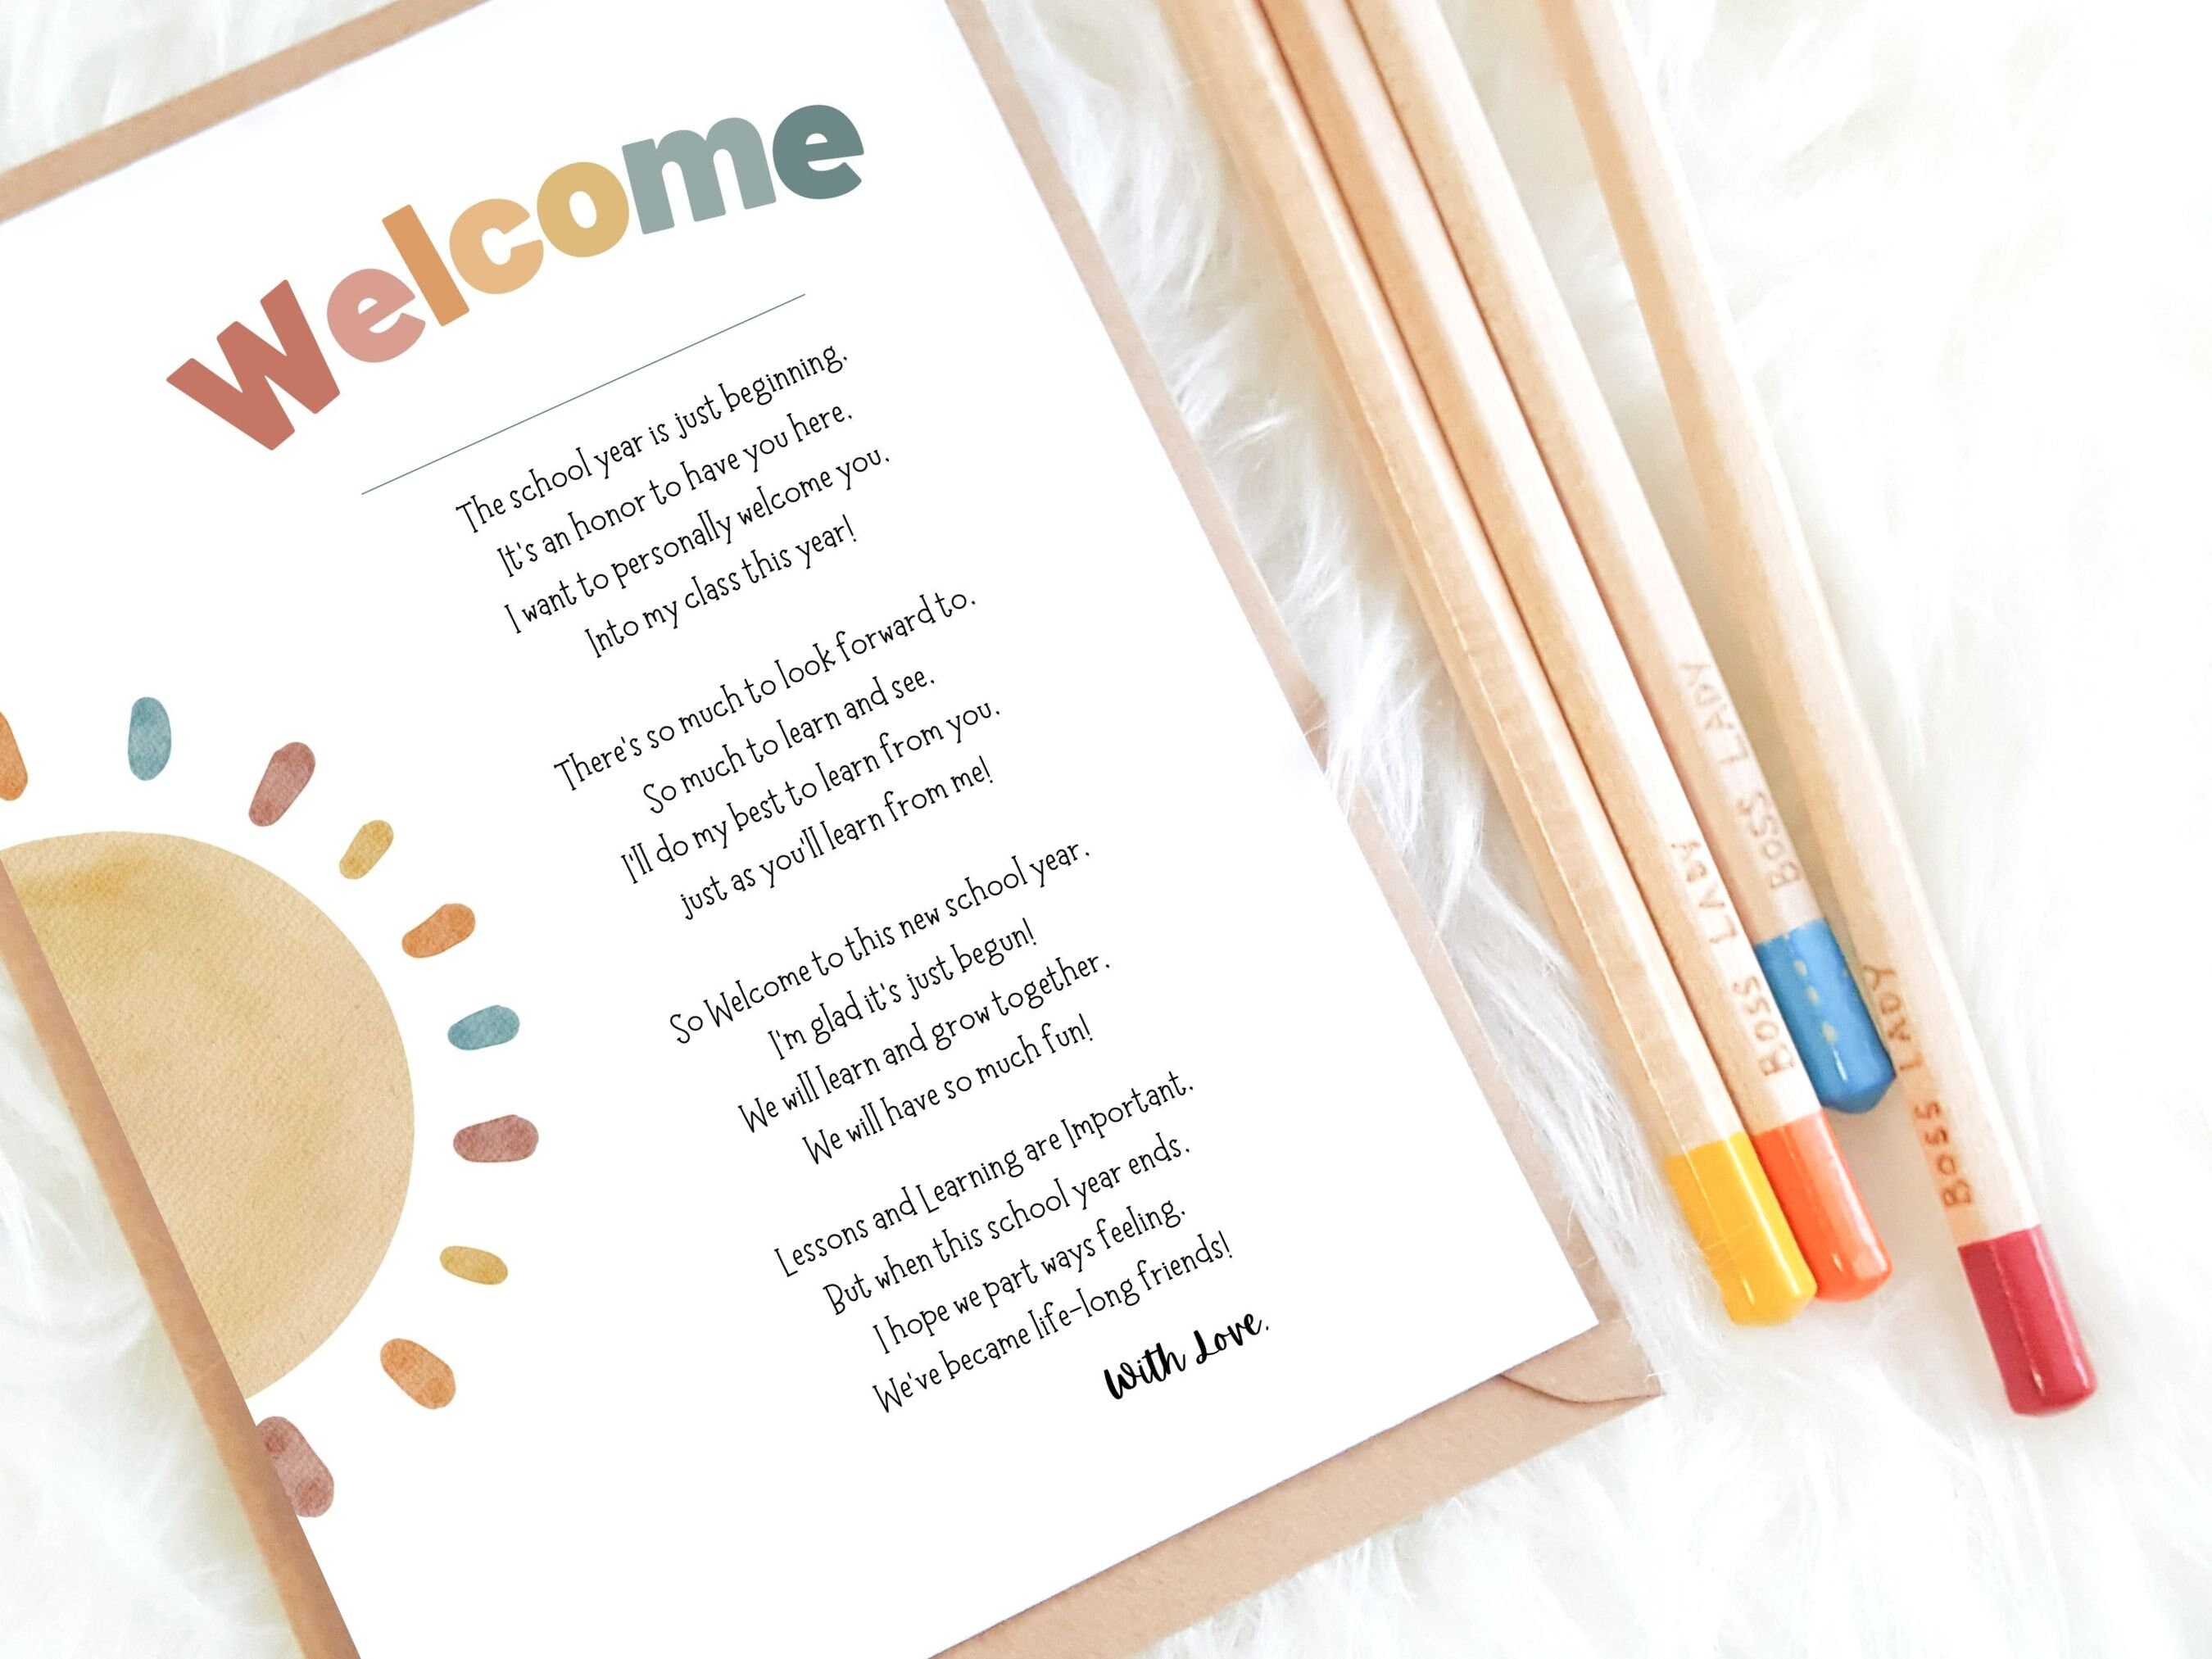 Welcome
The school year is just beginning,
It's an honor to have you here,
I want to personally welcome you,
Into my class this year!
There's so much to look forward to,
So much to learn and see,
I'll do my best to learn from you,
just as you'll learn from me!
So Welcome to this new school year,
I'm glad it's just begun!
We will learn and grow together,
We will have so much fun!
Lessons and Learning are Important,
But when this school year ends,
I hope we part ways feeling,
We've became life-long friends!
With Love,
BOSS LADY
BOSS LADY
BOSS LADY